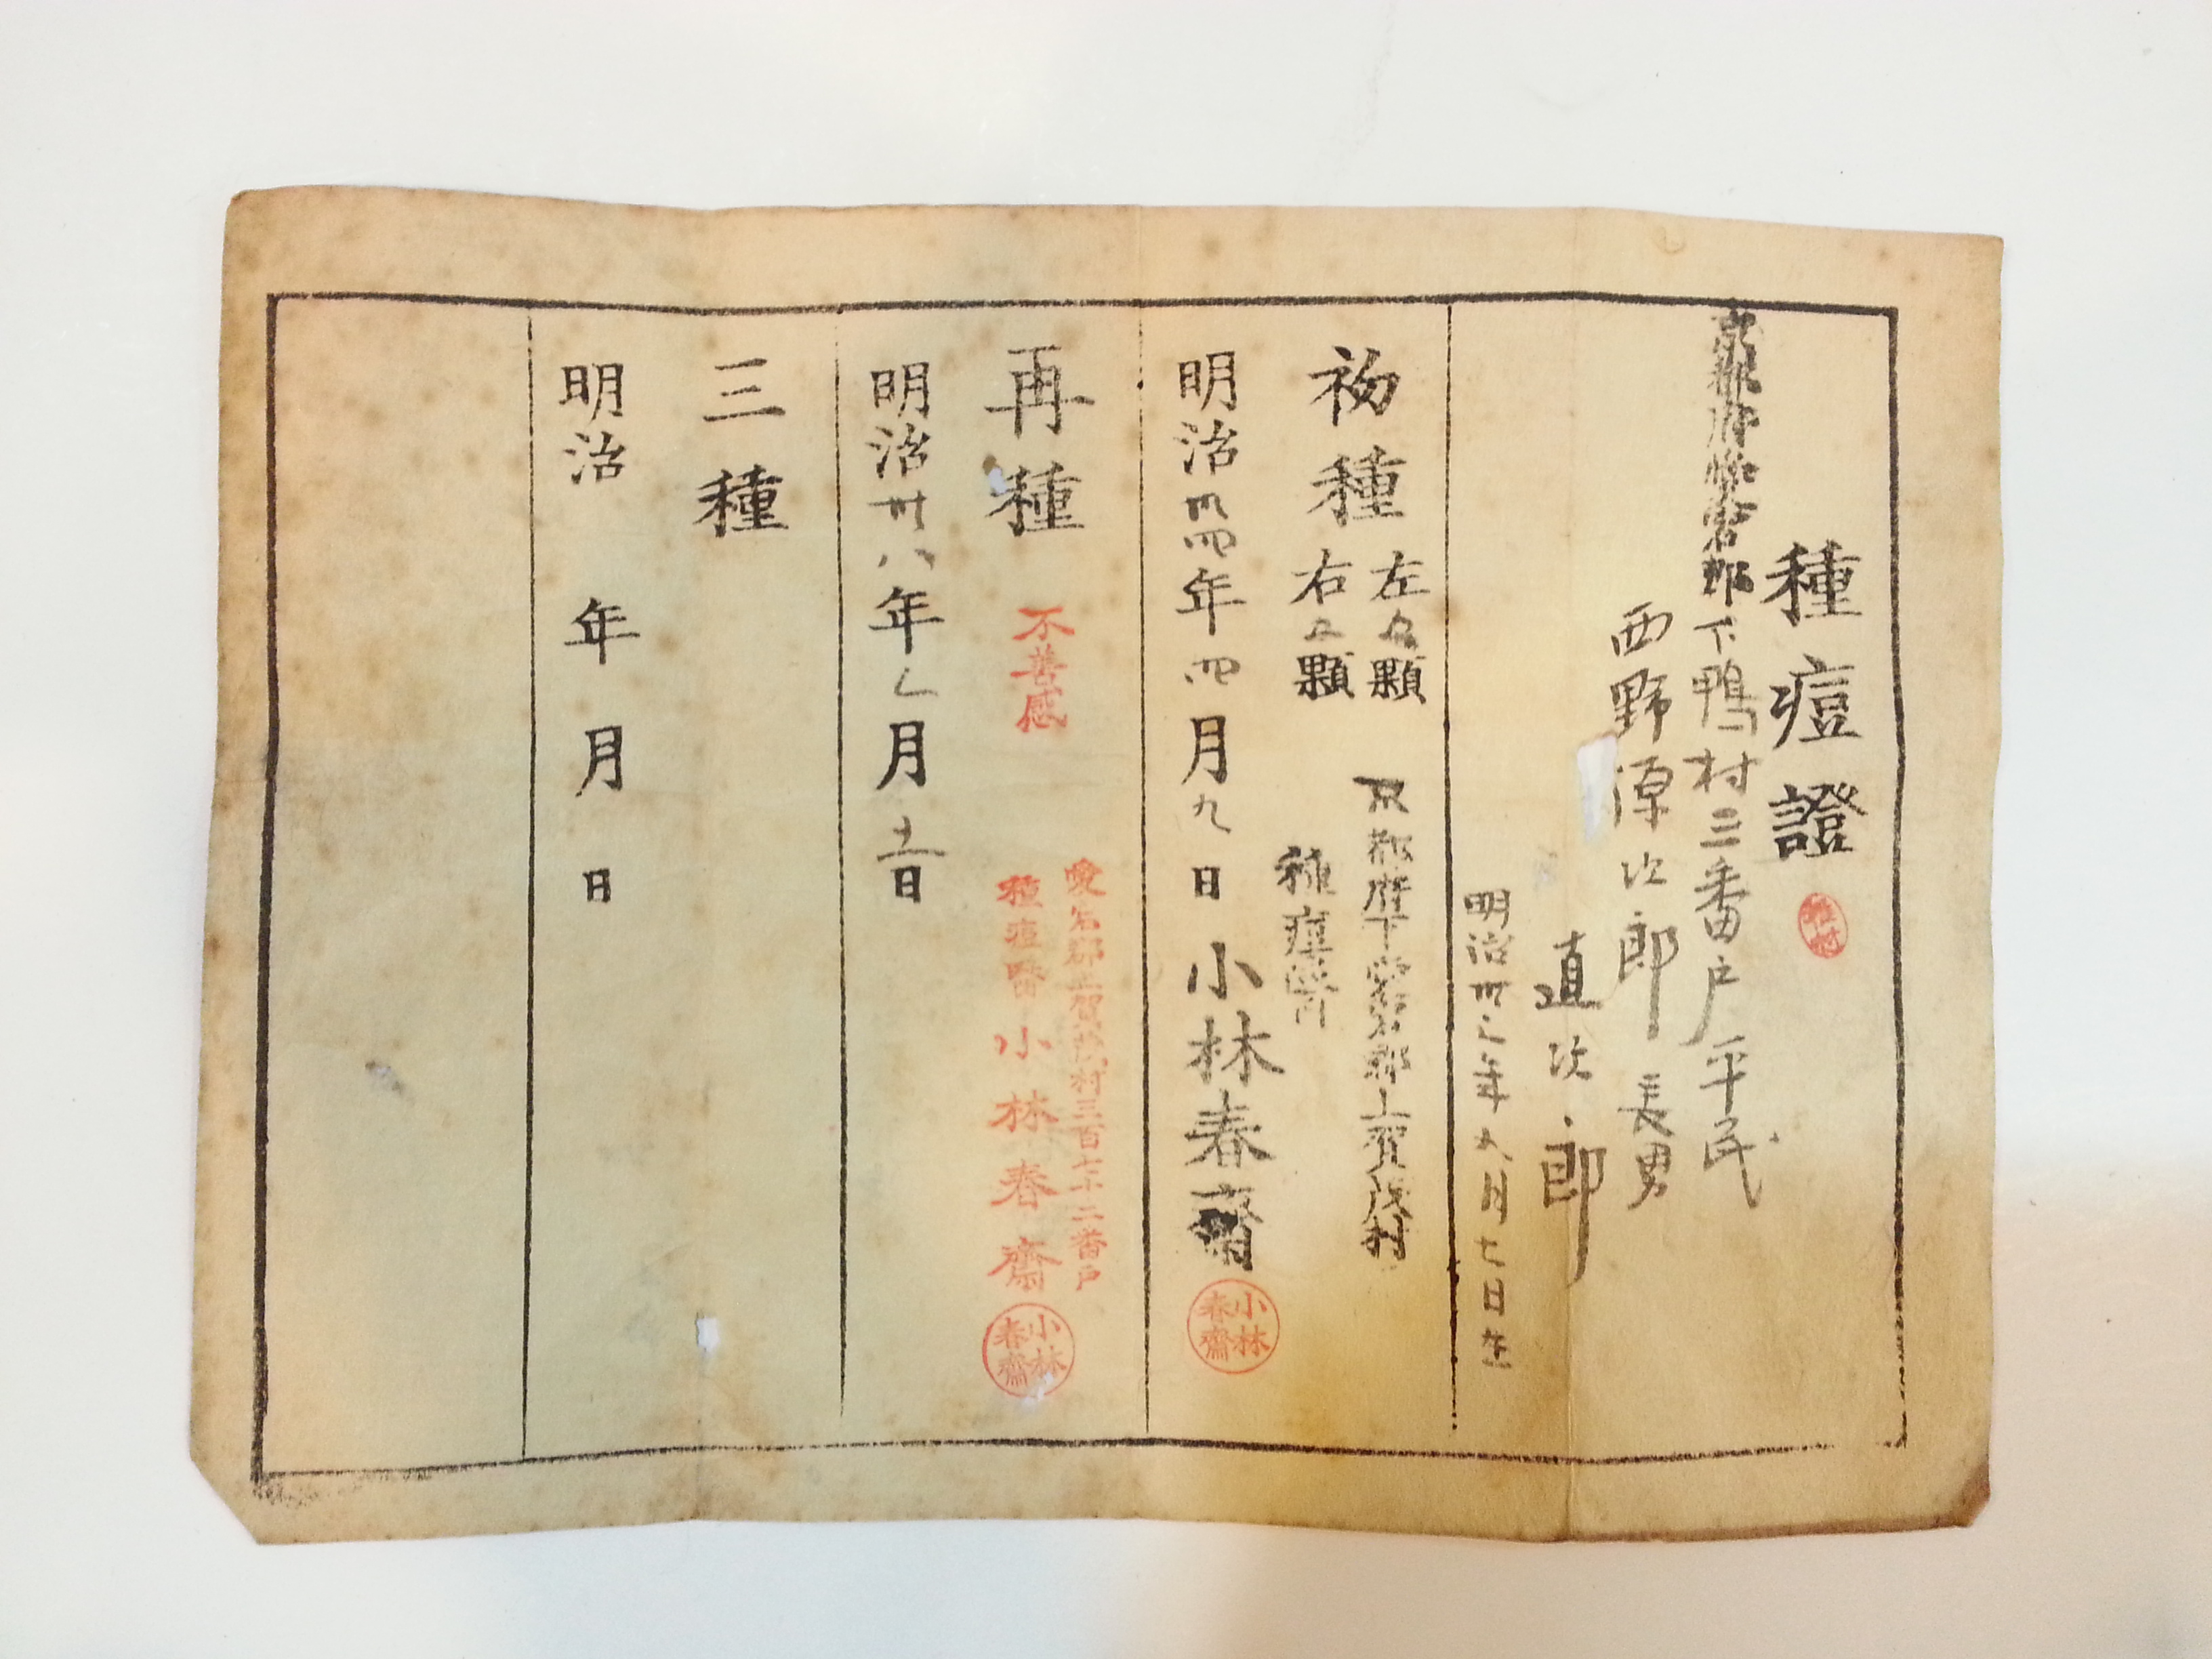 種痘證
京都府愛宕郡下鴨村三番戸平民
西野源次郎長男
直次郎
明治卅三年 月七日生
初種
左 顆
右 顆
京都府下愛宕郡上賀茂村
種痘醫
明治卅四年四月九日小林春齋
小林春齋
再種
不善感
愛宕郡上賀茂村三百七十二番戸
種痘醫小林春齋
小林春齋
明治卅八年 月 日
三種
明治 年 月 日